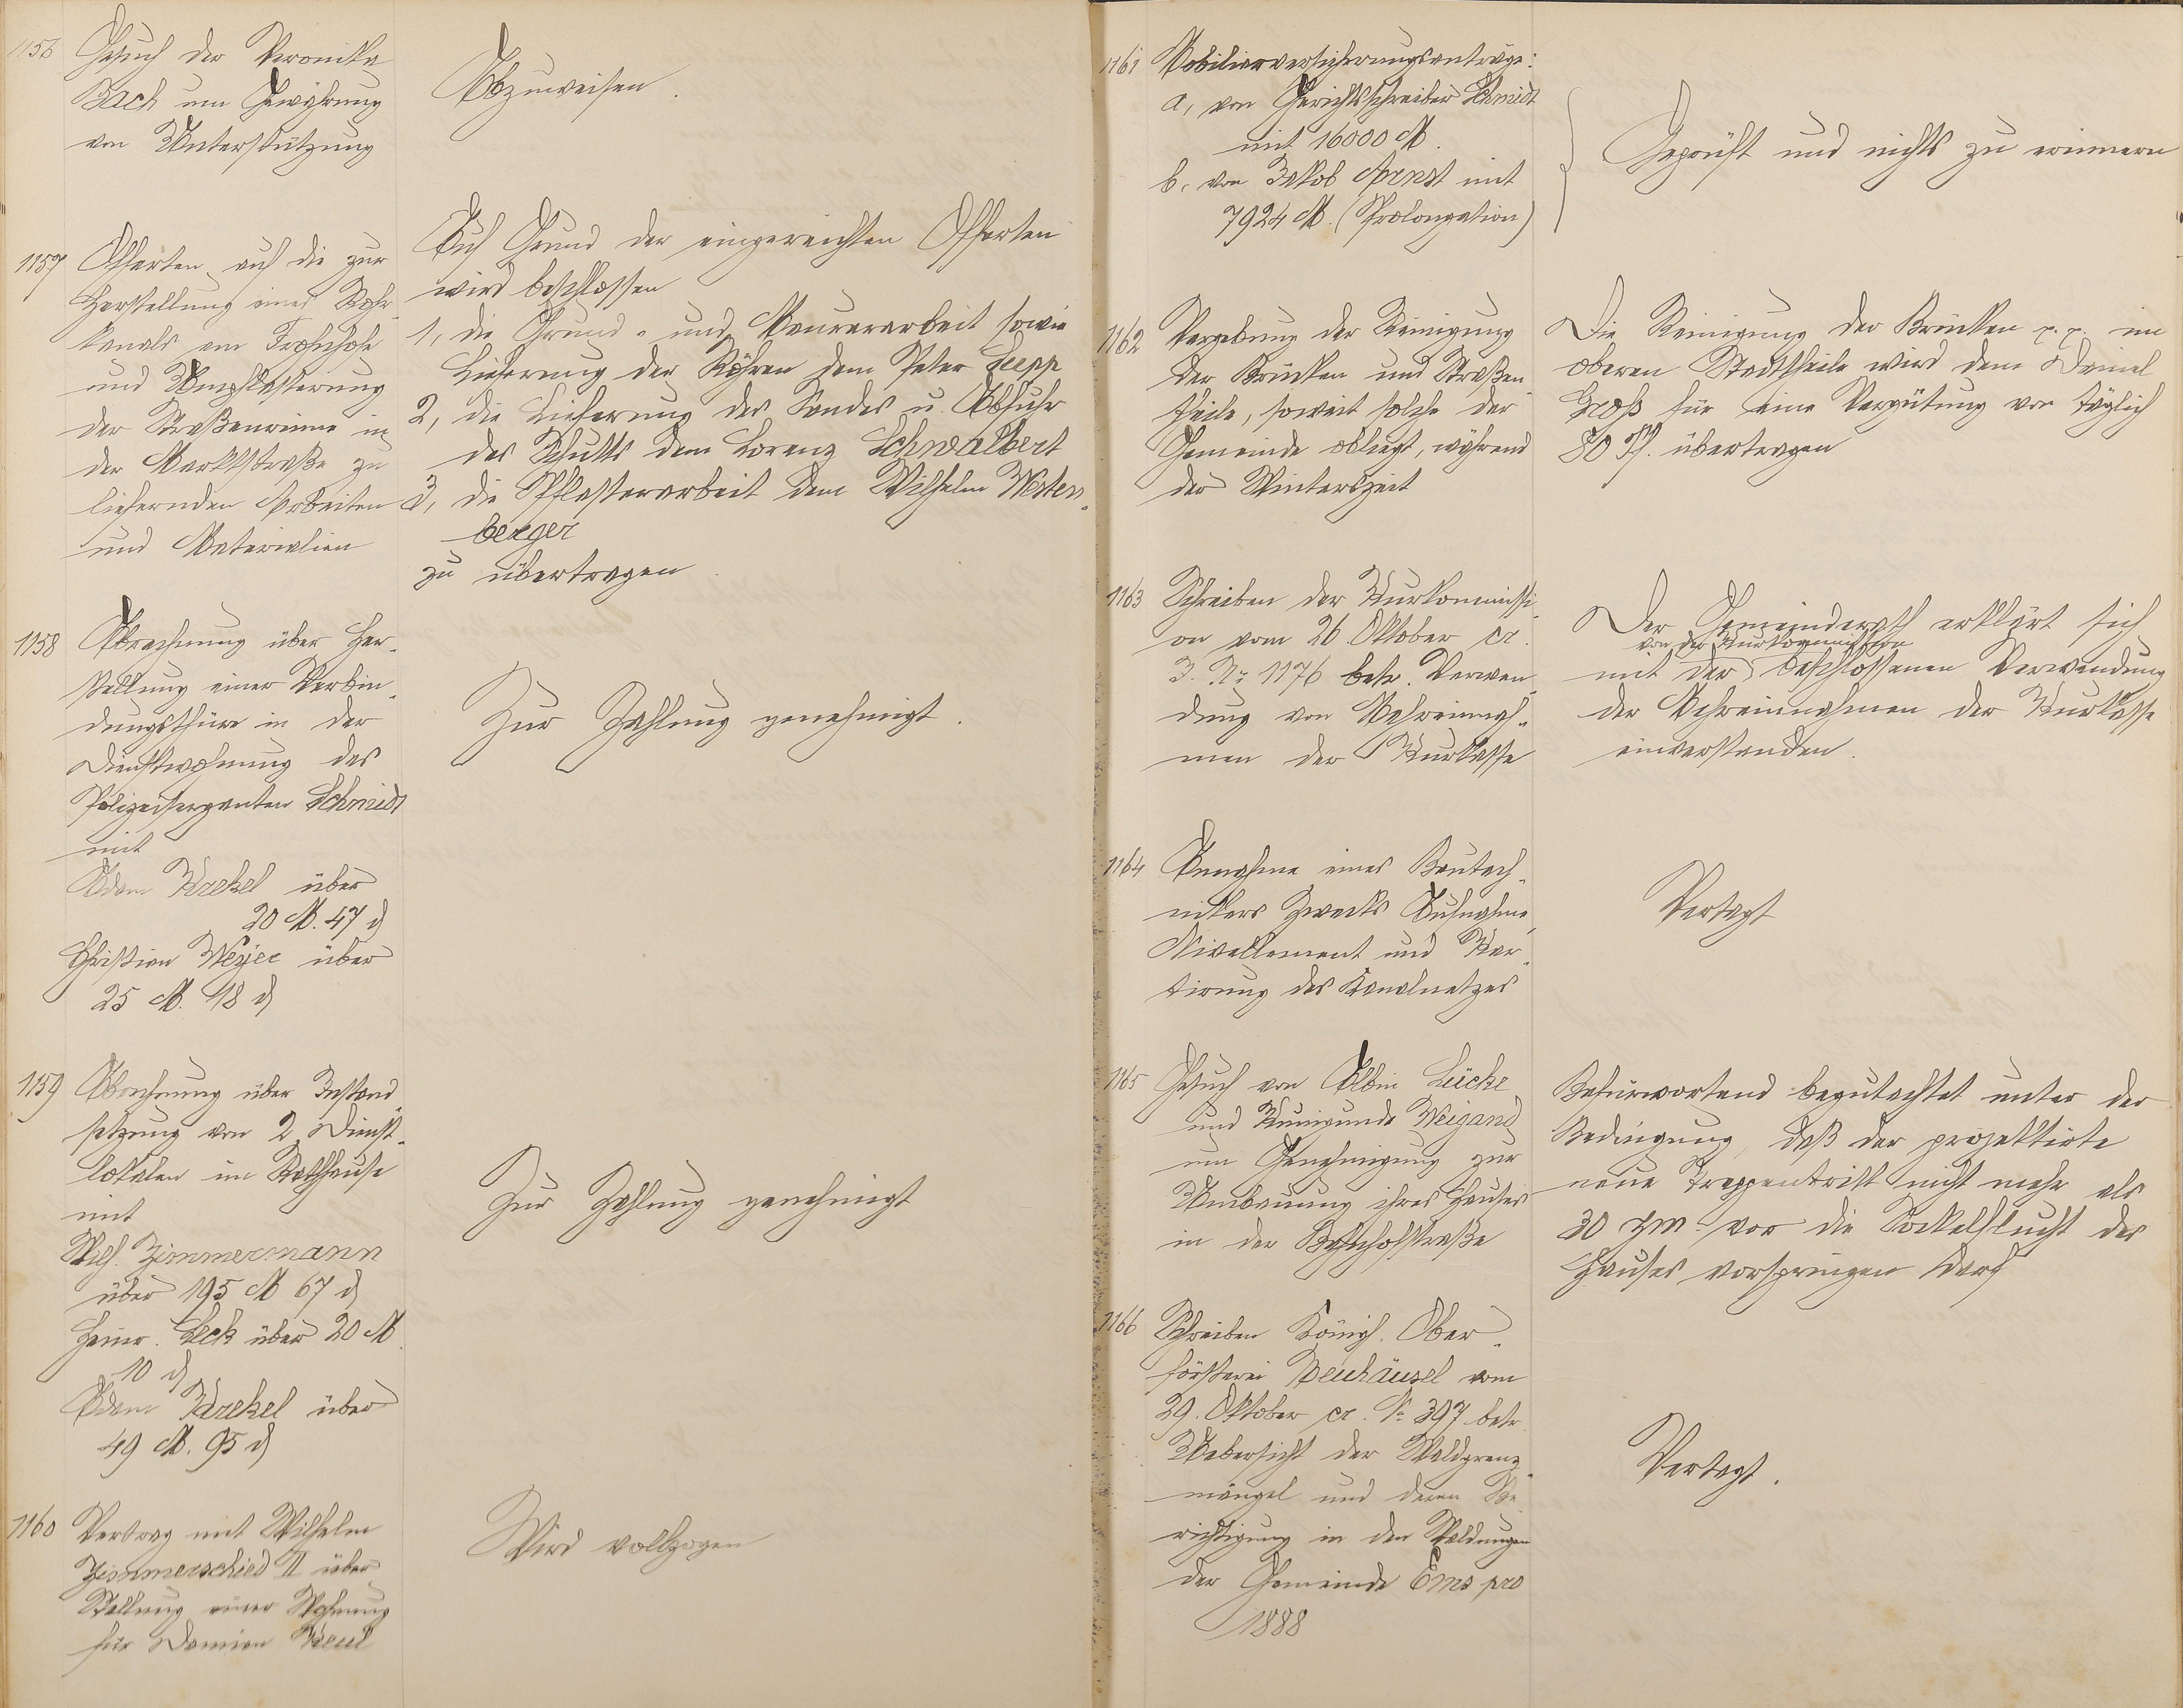 1156 Gesuch der Veronika
Bach um Gewährung
von Unterstützung
Abzuweisen.
1157 Offerten auf die zur
Herstellung eines Rohr-
kanals am Frohnhofe
und Umpflasterung
der Straßenrinne in
der Marktstraße zu
liefernden Arbeiten
und Materialien
Auf Grund der eingereichten Offerten
wird beschlossen
1, die Grund- und Maurerarbeit sowie
Lieferung der Röhren dem Peter Lepp
2, die Lieferung des Sandes u. Abfuhr
des Schutts dem Lorenz Schwalbert
3, die Pflasterarbeit dem Wilhelm Wester-
berger
zu übertragen.
1158 Abrechnung über Her-
stellung einer Verbin-
dungsthüre in der
Dienstwohnung des
Polizeiserganten Schmidt
mit
Adam Krekel über
20 M. 47 d
Christian Weyer über
25 M. 18 d
Zur Zahlung genehmigt.
1159 Abrechnung über Instand-
setzung von 2 Dienst-
lokalen im Rathhause
mit
Wilh. Zimmermann
über 195 M 67 d
Heinr. Leck über 20 M.
10 d
Adam Krekel über
49 M. 95 d
Zur Zahlung genehmigt
1160 Vertrag mit Wilhelm
Zimmerschied II über
Stellung einer Wohnung
für Damian Keul
Wird vollzogen
1161 Mobiliarversicherungsanträge:
a, von Gerichtsschreiber Schmidt
mit 16000 M.
b, von Jakob Arnst mit
7924 M. (Prolongation)
Geprüft und nichts zu erinnern
1162 Vergebung der Reinigung
der Brücken und Straßen-
theile, soweit solche der
Gemeinde obliegt, während
der Winterszeit
Die Reinigung der Brücken p. p. im
oberen Stadttheile wird dem Daniel
Groß für eine Vergütung von täglich
80 Pf. übertragen
1163 Schreiben der Kurkommissi-
on vom 26. Oktober cr.
J. No 1176 betr. Verwen-
dung von Mehreinnah-
men der Kurkasse
Der Gemeinderath erklärt sich
von der Kurkommission
mit der beschlossenen Verwendung
der Mehreinnahmen der Kurkasse
einverstanden.
1164 Annahme eines Bautech-
nikers Zwecks Aufnahme,
Nivellement und Kar-
tirung des Kanalnetzes
Vertagt
1165 Gesuch von Albin Lücke
und Kunigunde Weigand
um Genehmigung zur
Umbauung ihres Hauses
in der Bahnhofstraße
Befürwortend begutachtet unter der
Bedingung, daß der projektirte
neue Treppentritt nicht mehr als
30 zm. vor die Sockelflucht des
Hauses vorspringen darf
1166 Schreiben Königl. Ober-
försterei Neuhäusel vom
29. Oktober cr. No 397 betr
Uebersicht der Waldgrenz-
mängel und deren Be-
richtigung in den Waldungen
der Gemeinde Ems pro
1888
Vertagt.